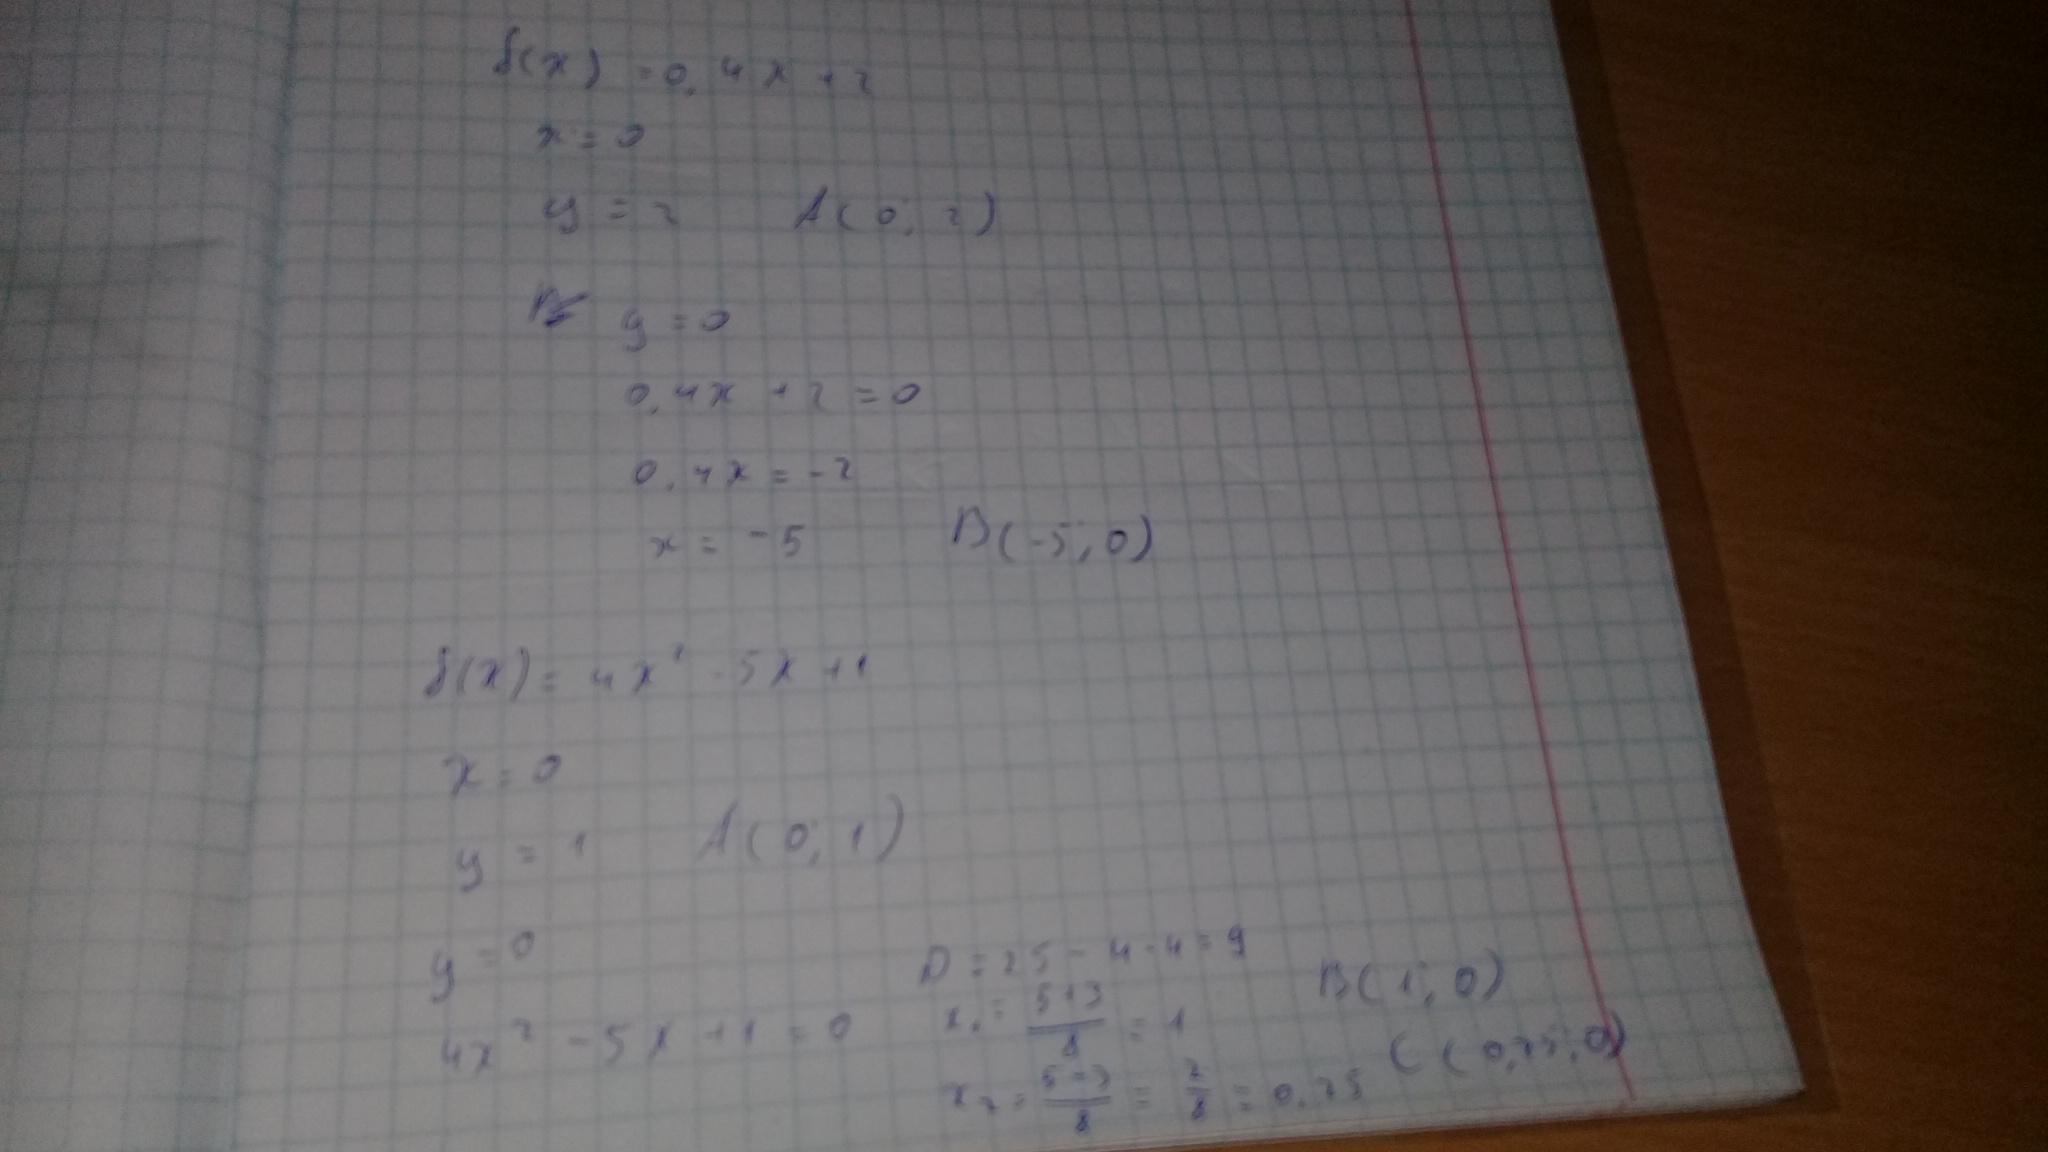 f(x) = 0,4x + 2
x = 0
y = 2 A(0; 2)
y = 0
0,4x + 2 = 0
0,4x = -2
x = -5 B(-5; 0)
f(x) = 4x² - 5x + 1
x = 0
y = 1 A(0; 1)
y = 0
4x² - 5x + 1 = 0
D = 25 - 4·4 = 9
x₁ = (5+3)/8 = 1
x₂ = (5-3)/8 = 2/8 = 0,25
B(1; 0)
C(0,25; 0)